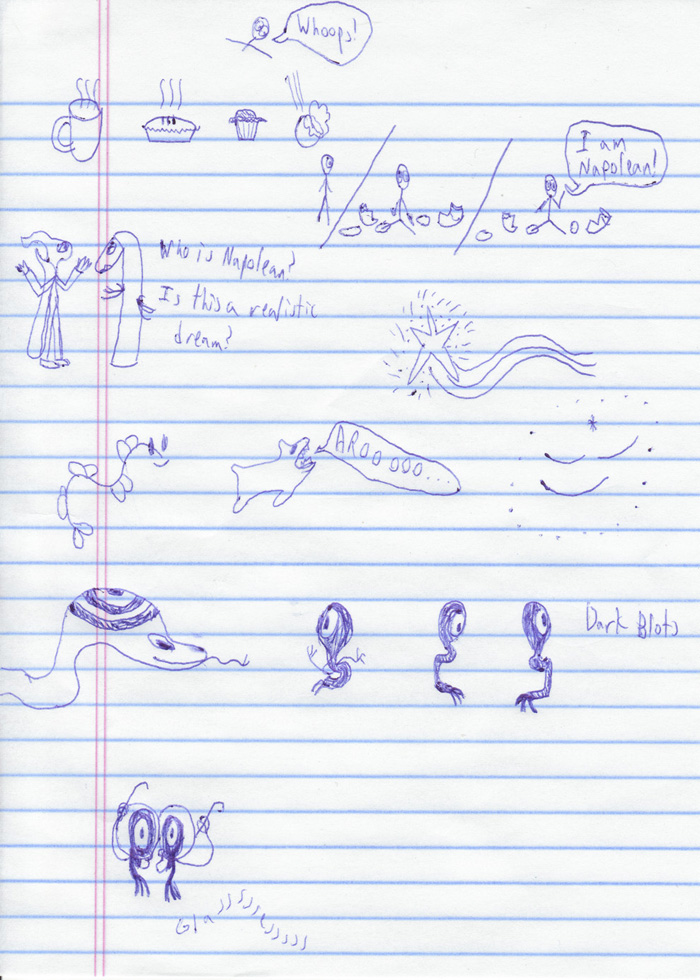 Whoops!
I am
Napolean!
Who is Napolean?
Is this a realistic
dream?
AROOOOO...
Dark Blots
Glassssesssss